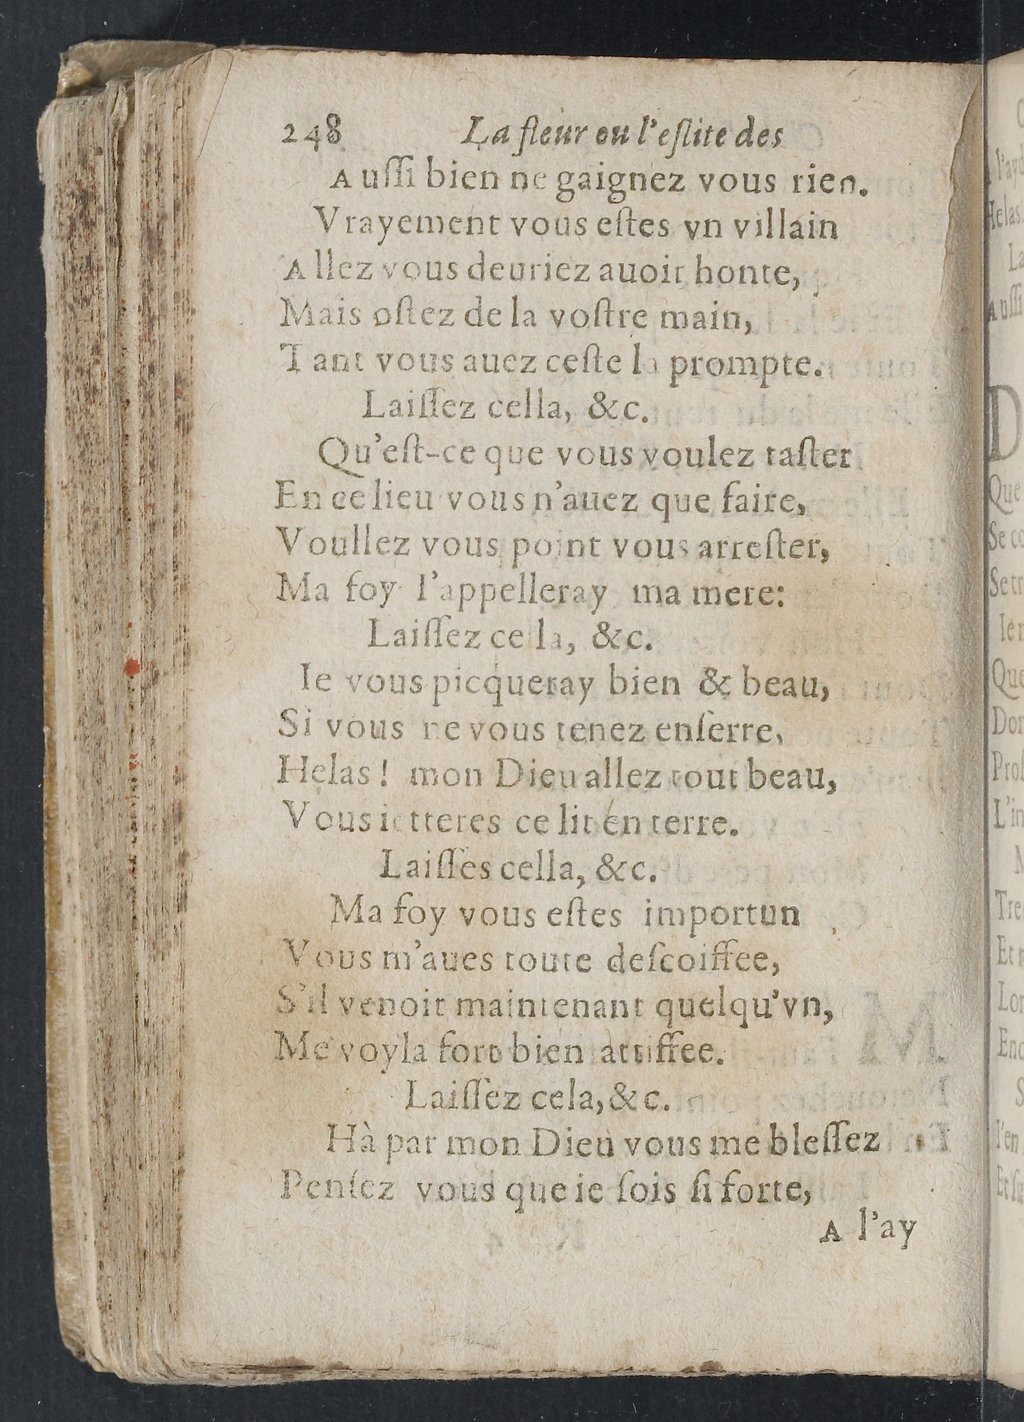 248 La fleur ou l'eſlite des
Auſſi bien ne gaignez vous rien.
Vrayement vous eſtes vn villain
Allez vous deuriez auoir honte,
Mais oſtez de la voſtre main,
Tant vous auez ceſte la prompte.
Laiſſez cella, &c.
Qu'eſt-ce que vous voulez taſter
En ce lieu vous n'auez que faire,
Voullez vous point vous arreſter,
Ma foy I'appelleray ma mere:
Laiſſez cela, &c.
Ie vous picqueray bien & beau,
Si vous ne vous tenez enſerre,
Helas! mon Dieu allez tout beau,
Vous ietteres ce lit en terre.
Laiſſes cella, &c.
Ma foy vous eſtes importun
Vous m'aues toute deſcoiffee,
S'il venoit maintenant quelqu'vn,
Me voyla fort bien attiffee.
Laiſſez cela, &c.
Hà par mon Dieu vous me bleſſez
Penſez vous que ie ſois ſi forte,
A l'ay